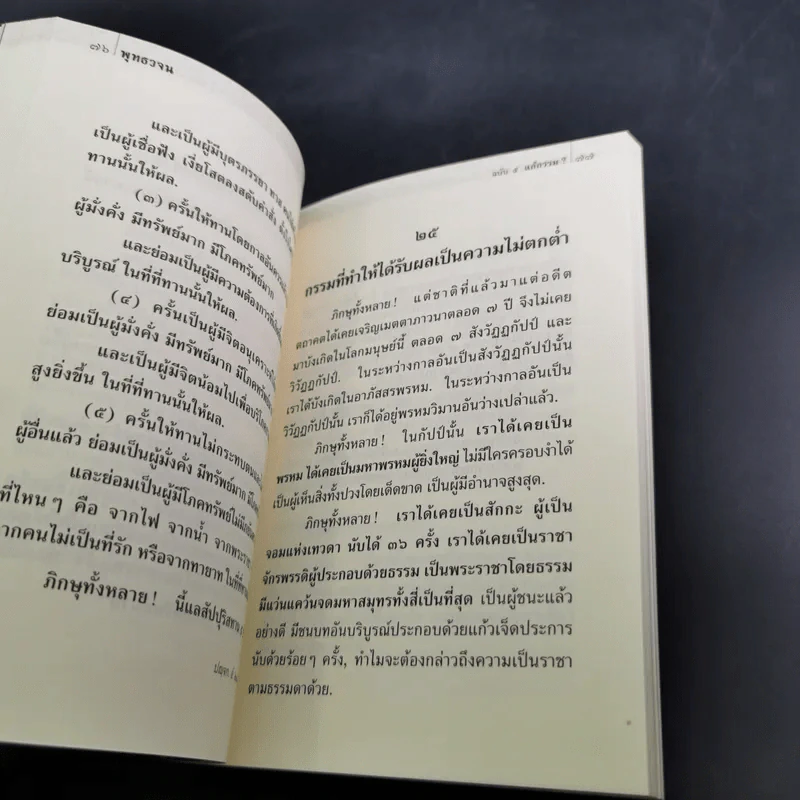 ๗๖ พุทธวจน
และเป็นผู้มีบุตรภรรยา ทาส
เป็นผู้เชื่อฟัง เงี่ยโสตลงสดับคำสั่ง
ทานนั้นให้ผล.
(๓) ครั้นให้ทานโดยกาลอันควร
ผู้มั่งคั่ง มีทรัพย์มาก มีโภคทรัพย์มาก
และย่อมเป็นผู้มีความต้องการที่
บริบูรณ์ ในที่ที่ทานนั้นให้ผล.
(๔) ครั้นเป็นผู้มีจิตอนุเคราะห์
ย่อมเป็นผู้มั่งคั่ง มีทรัพย์มาก มีโภคทรัพย์
และเป็นผู้มีจิตน้อมไปเพื่อบริโภค
สูงยิ่งขึ้น ในที่ที่ทานนั้นให้ผล.
(๕) ครั้นให้ทานไม่กระทบตน
ผู้อื่นแล้ว ย่อมเป็นผู้มั่งคั่ง มีทรัพย์มาก มี
และย่อมเป็นผู้มีโภคทรัพย์ไม่มี
ที่ไหนๆ คือ จากไฟ จากน้ำ จากพระ
คนไม่เป็นที่รัก หรือจากทายาท ในที่
ภิกษุทั้งหลาย! นี้แลสัปปุริสทาน
ฉบับ ๕ แก้กรรม? ๗๗
๒๕
กรรมที่ทำให้ได้รับผลเป็นความไม่ตกต่ำ
ภิกษุทั้งหลาย! แต่ชาติที่แล้วมาแต่อดีต
ตถาคตได้เคยเจริญเมตตาภาวนาตลอด ๗ ปี จึงไม่เคย
มาบังเกิดในโลกมนุษย์นี้ ตลอด ๗ สังวัฏฏกัปป์ และ
วิวัฏฏกัปป์. ในระหว่างกาลอันเป็นสังวัฏฏกัปป์นั้น
เราได้บังเกิดในอาภัสสรพรหม. ในระหว่างกาลอันเป็น
วิวัฏฏกัปป์นั้น เราก็ได้อยู่พรหมวิมานอันว่างเปล่าแล้ว.
ภิกษุทั้งหลาย! ในกัปป์นั้น เราได้เคยเป็น
พรหม ได้เคยเป็นมหาพรหมผู้ยิ่งใหญ่ ไม่มีใครครอบงำได้
เป็นผู้เห็นสิ่งทั้งปวงโดยเด็ดขาด เป็นผู้มีอำนาจสูงสุด.
ภิกษุทั้งหลาย! เราได้เคยเป็นสักกะ ผู้เป็น
จอมแห่งเทวดา นับได้ ๓๖ ครั้ง เราได้เคยเป็นราชา
จักรพรรดิผู้ประกอบด้วยธรรม เป็นพระราชาโดยธรรม
มีแว่นแคว้นจดมหาสมุทรทั้งสี่เป็นที่สุด เป็นผู้ชนะแล้ว
อย่างดี มีชนบทอันบริบูรณ์ประกอบด้วยแก้วเจ็ดประการ
นับด้วยร้อยๆ ครั้ง, ทำไมจะต้องกล่าวถึงความเป็นราชา
ตามธรรมดาด้วย.